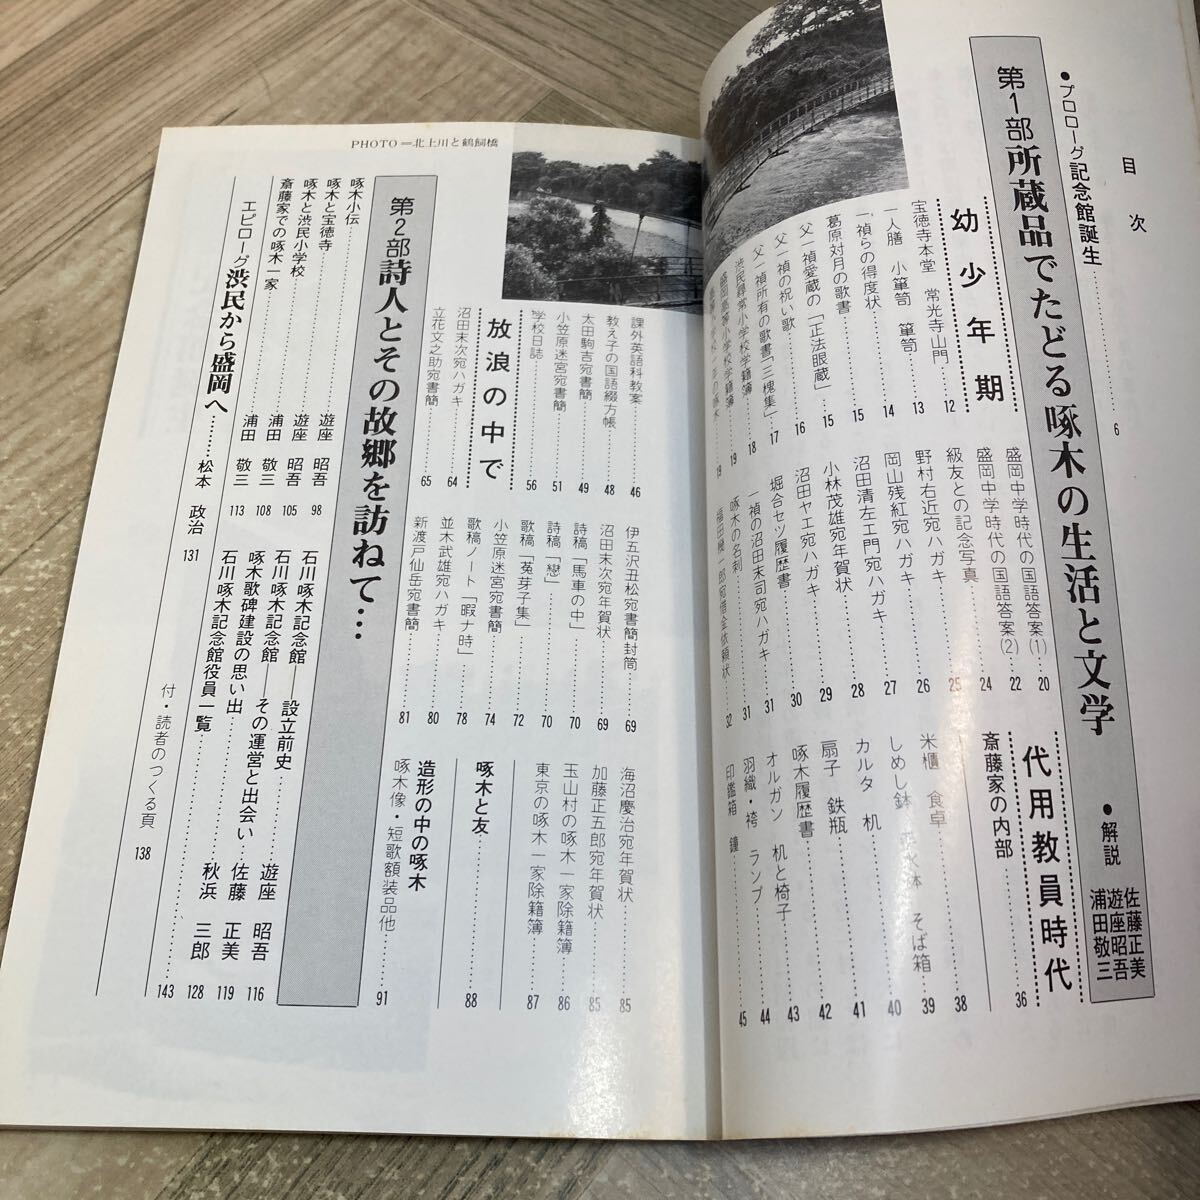 目次
●プロローグ 記念館誕生……6
第1部 所蔵品でたどる啄木の生活と文学
●解説
佐藤正美
遊座昭吾
浦田敬三
幼少年期
宝徳寺本堂 常光寺山門……12
一人膳 小箪笥 箪笥……13
一禎らの得度状……14
葛原対月の歌書……15
父一禎愛蔵の「正法眼蔵」……15
父一禎の祝い歌……16
父一禎所有の歌書「三槐集」……17
渋民尋常小学校学籍簿……18
盛岡高等小学校学籍簿……19
19
盛岡中学時代の国語答案(1)……20
盛岡中学時代の国語答案(2)……22
級友との記念写真……24
野村右近宛ハガキ……25
岡山残紅宛ハガキ……26
沼田清左エ門宛ハガキ……27
小林茂雄宛年賀状……28
沼田ヤエ宛ハガキ……29
堀合セツ履歴書……30
一禎の沼田末司宛ハガキ……31
啄木の名刺……31
福田機一郎宛借金依頼状……32
代用教員時代
斎藤家の内部……36
米櫃 食卓……38
しめし鉢 そば箱……39
カルタ 机……40
扇子 鉄瓶……41
啄木履歴書……42
オルガン 机と椅子……43
羽織・袴 ランプ……44
印鑑箱 鐘……45
PHOTO=北上川と鶴飼橋
課外英語科教案……46
教え子の国語綴方帳……48
太田駒吉宛書簡……49
小笠原迷宮宛書簡……51
学校日誌……56
放浪の中で
沼田末次宛ハガキ……64
立花文之助宛書簡……65
伊五沢丑松宛書簡封筒……69
沼田末次宛年賀状……69
詩稿「馬車の中」……70
詩稿「戀」……70
歌稿「莫芽子集」……72
小笠原迷宮宛書簡……74
歌稿ノート「暇ナ時」……78
並木武雄宛ハガキ……80
新渡戸仙岳宛書簡……81
海沼慶治宛年賀状……85
加藤正五郎宛年賀状……85
玉山村の啄木一家除籍簿……86
東京の啄木一家除籍簿……87
啄木と友……88
造形の中の啄木
啄木像・短歌額装品他……91
第2部 詩人とその故郷を訪ねて…
啄木小伝……遊座 昭吾 98
啄木と宝徳寺……遊座 昭吾 105
啄木と渋民小学校……浦田 敬三 108
斎藤家での啄木一家……浦田 敬三 113
エピローグ 渋民から盛岡へ……松本 政治 131
石川啄木記念館――設立前史……遊座 昭吾 116
石川啄木記念館――その運営と出会い……佐藤 正美 119
啄木歌碑建設の思い出……秋浜 三郎 128
石川啄木記念館役員一覧……143
付・読者のつくる頁 138